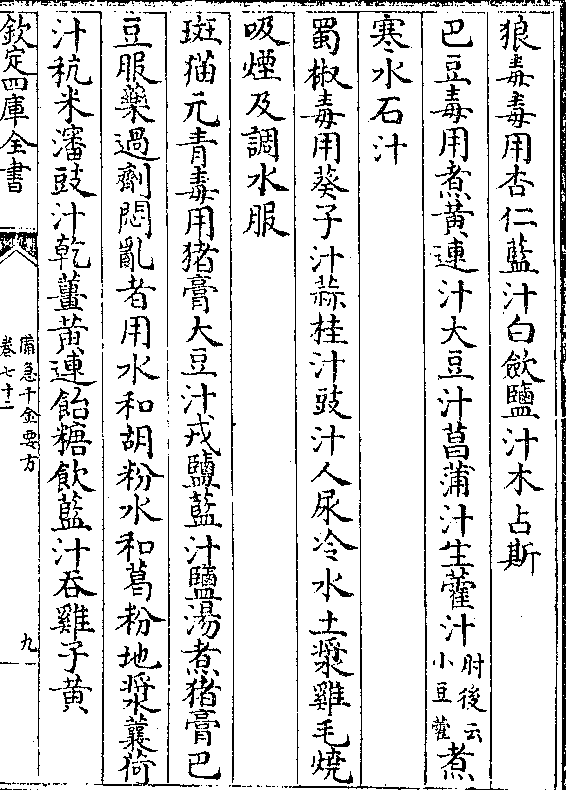 狼毒毒用杏仁藍汁白飲鹽汁木占斯
巴豆毒用煮黃連汁大豆汁菖蒲汁生藿汁肘後云小豆藿煮
寒水石汁
蜀椒毒用葵子汁蒜桂汁豉汁人尿冷水土漿雞毛燒
吸煙及調水服
斑猫元青毒用猪膏大豆汁戎鹽藍汁鹽湯煮猪膏巴
豆服藥過劑悶亂者用水和胡粉水和葛粉地漿蘘荷
汁秔米瀋豉汁乾薑黃連飴糖飲藍汁吞雞子黃
欽定四庫全書
備急千金要方
卷七十二
九